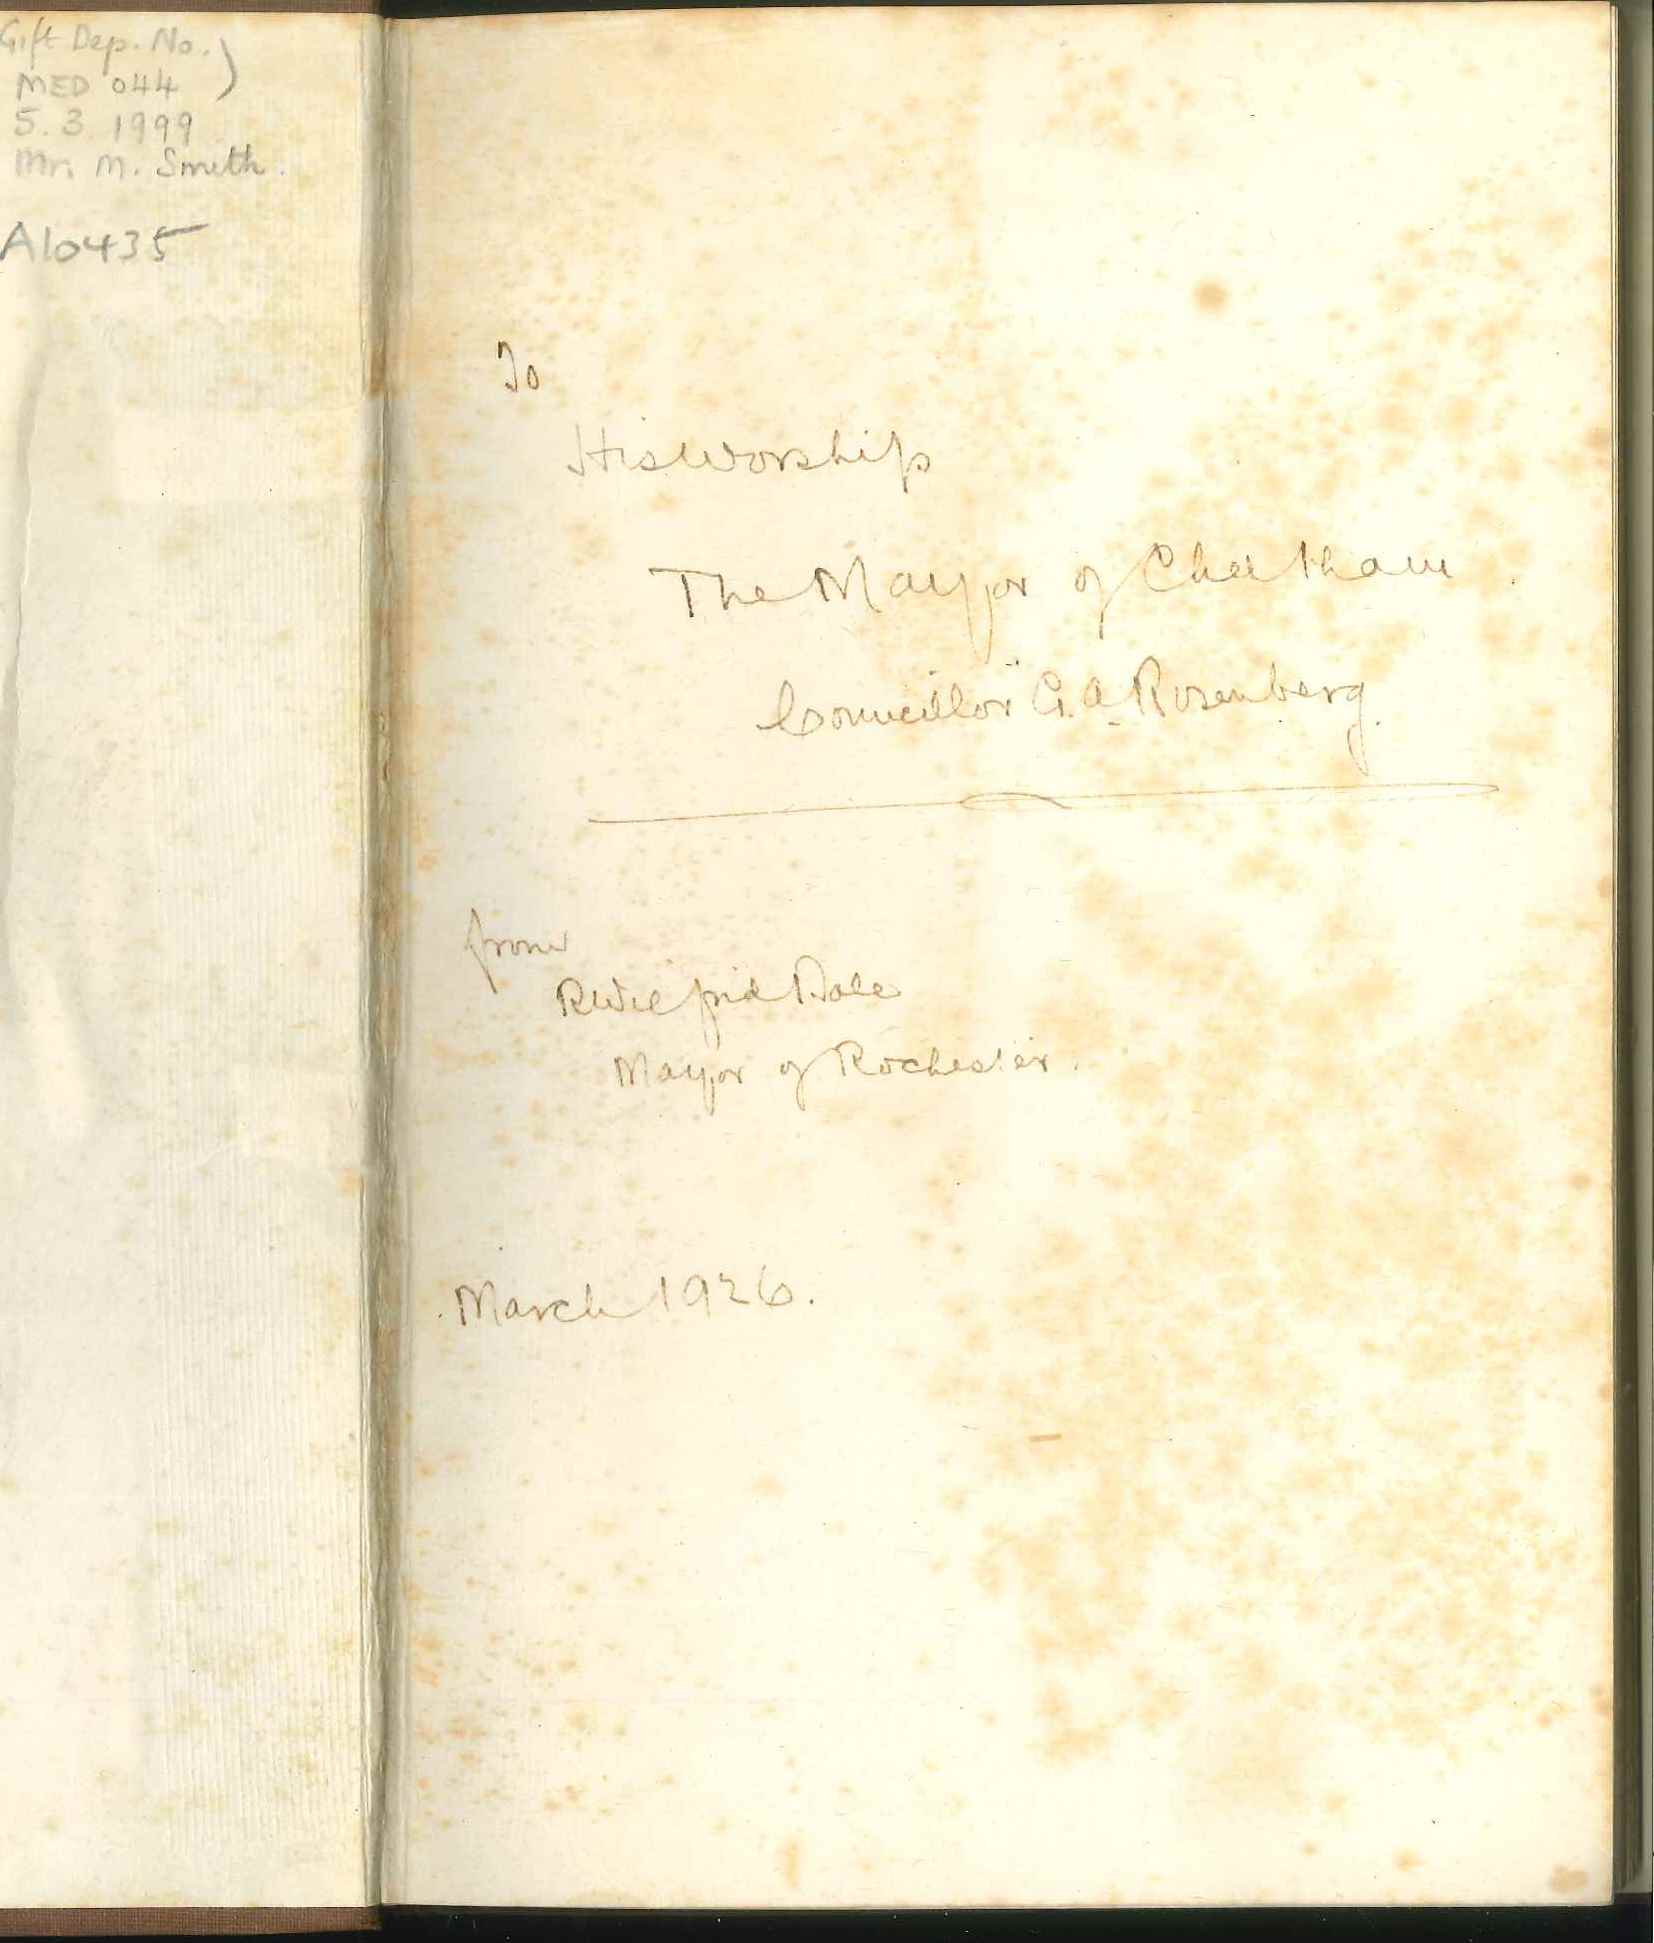 Gift Dep. No. )
MED 044
5.3.1999
Mr. M. Smith.
A10435
To
His Worship
The Mayor of Chatham.
Councillor G.A. Rosenberg.
from
R Wilfrid Dale
Mayor of Rochester.
March 1926.